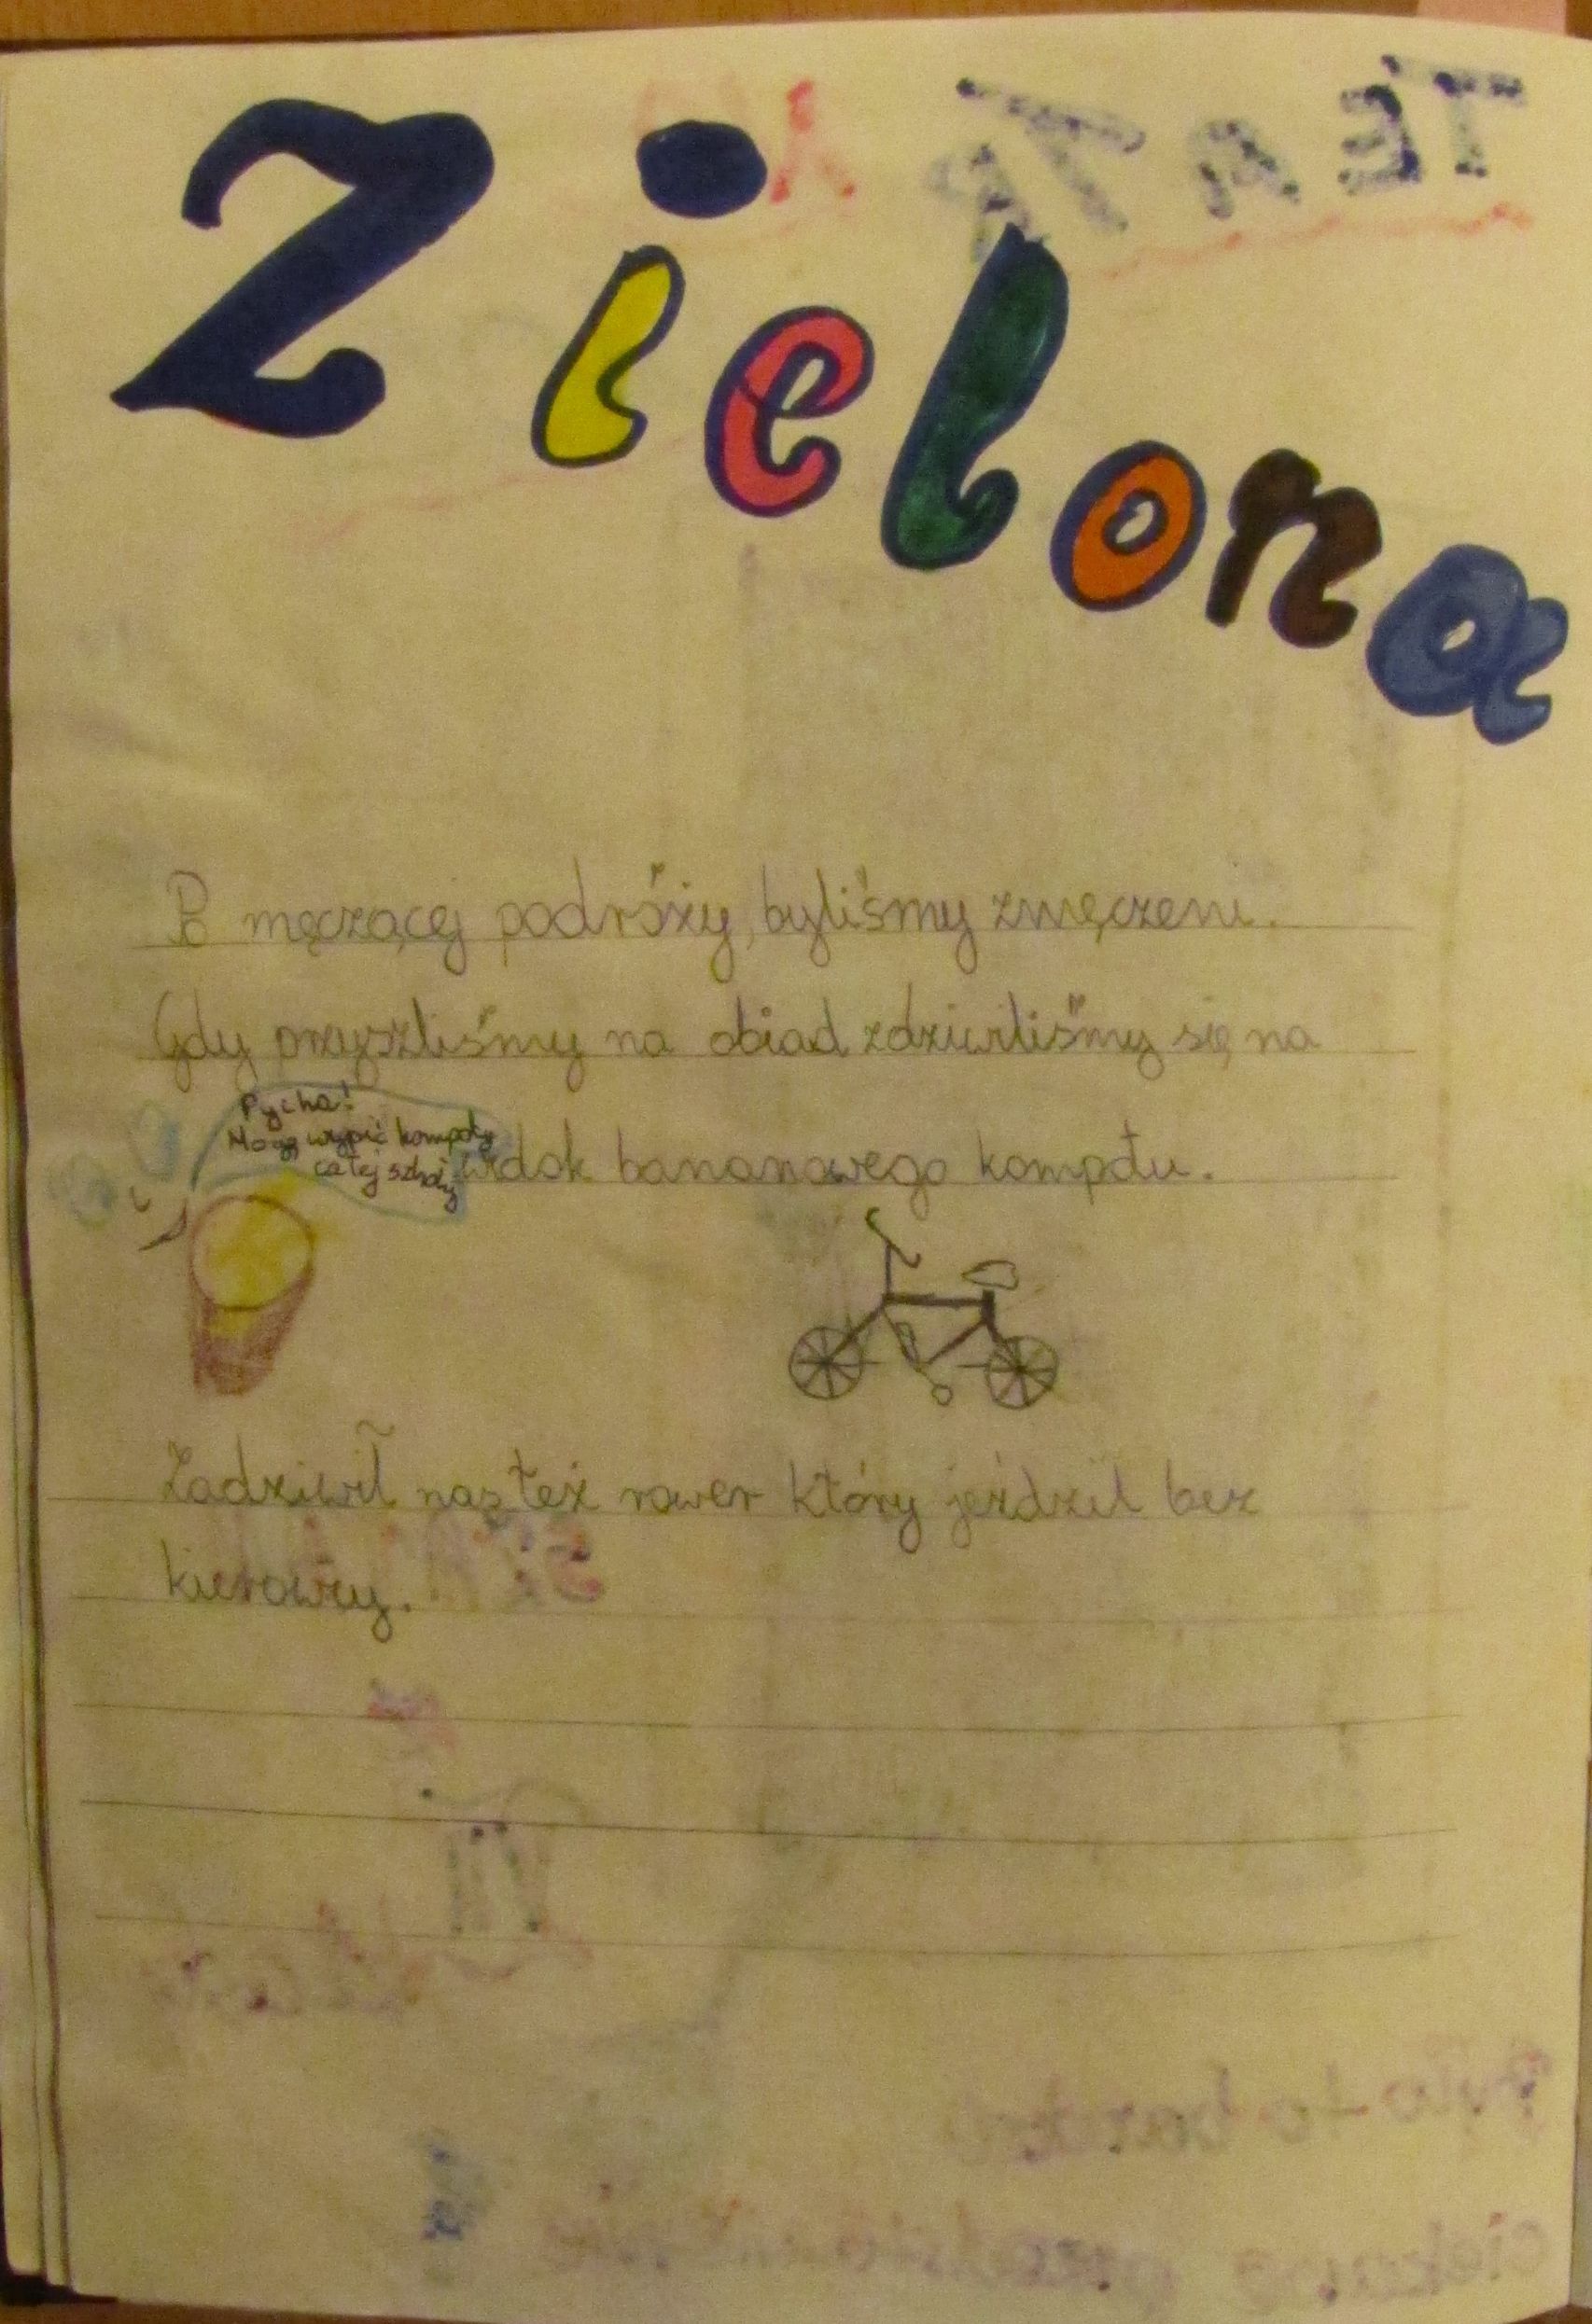 Zielona
Po męczącej podróży, byliśmy zmęczeni.
Gdy przyszliśmy na obiad zdziwiliśmy się na
Pycha!
Mogę wypić kompoty
całej szkoły
widok bananowego kompotu.
Zadziwił nas też rower który jeździł bez
kierowcy.